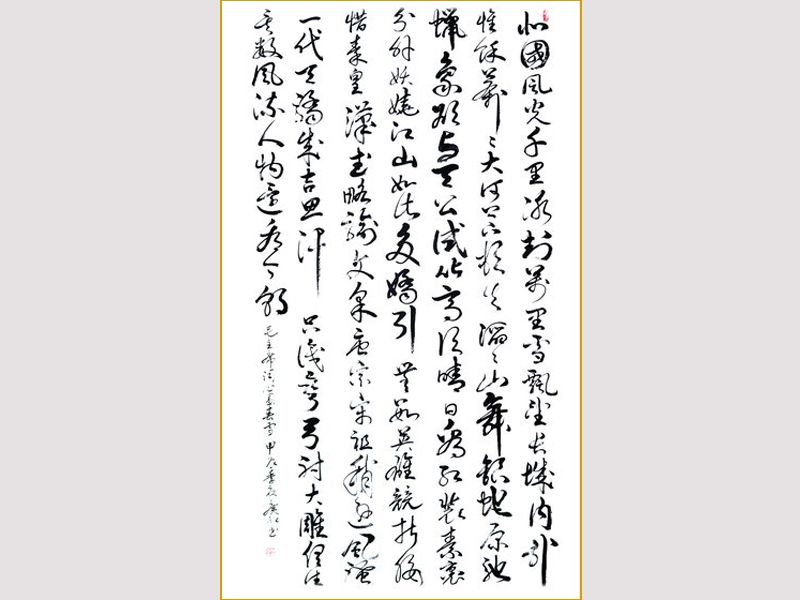 北國風光千里冰封萬里雪飄望長城內外
惟餘莽〻大河上下頓失滔〻山舞銀蛇原馳
蠟象欲与天公試比高須晴日看紅裝素裹
分外妖嬈江山如此多嬌引無數英雄競折腰
惜秦皇漢武略輸文采唐宗宋祖稍遜風騷
一代天驕成吉思汗只識彎弓射大雕俱往
矣數風流人物還看今朝
毛主席詞沁園春雪甲午書